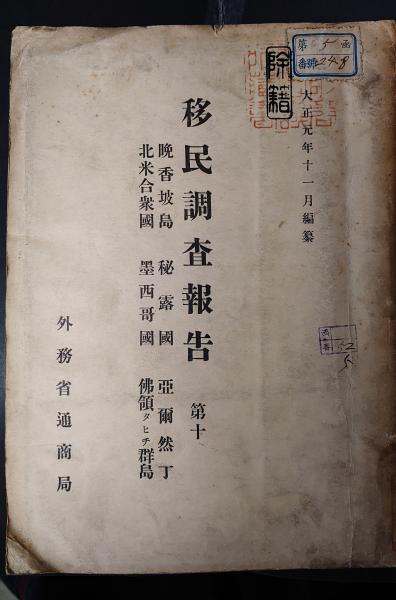 大正元年十一月編纂
移民調査報告 第十
晩香坡島 秘露國 亞爾然丁
北米合衆國 墨西哥國 佛領タヒチ群島
外務省通商局
除籍
第 5 函
番號 248
函
番
52
5